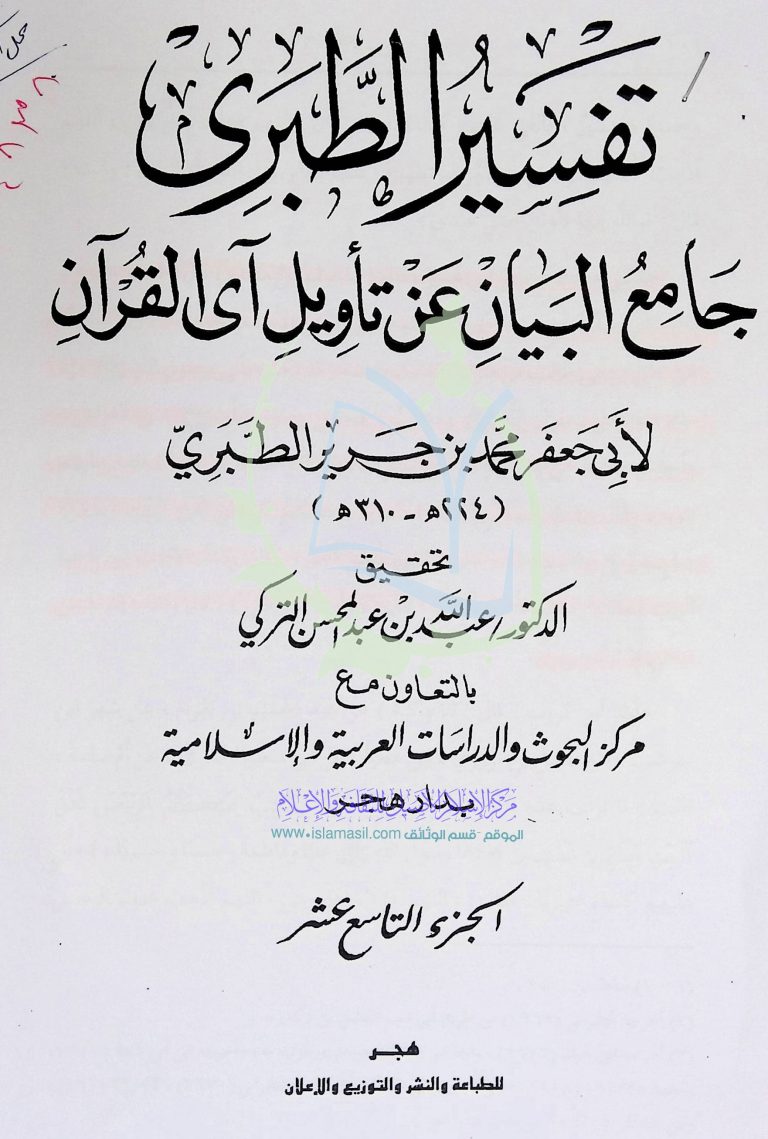 تَفْسِيرُ الطَّبَرِى
جَامِعُ البَيَانِ عَنْ تَأوِيلِ آىِ القُرْآنِ
لأَبِي جَعفَر مُحَمَّد بن جَرير الطَّبَرِيّ
( ٢٢٤ه - ٣١٠ه )
تحقيق
الدكتور/عبد اللَّه بن عبد المحسن التركي
بالتعاون مع
مركز البحوث والدراسات العربية والإسلامية
بدار هجر
الموقع - قسم الوثائق www.islamasil.com
الجزء التاسع عشر
هجر
للطباعة والنشر والتوزيع والإعلان